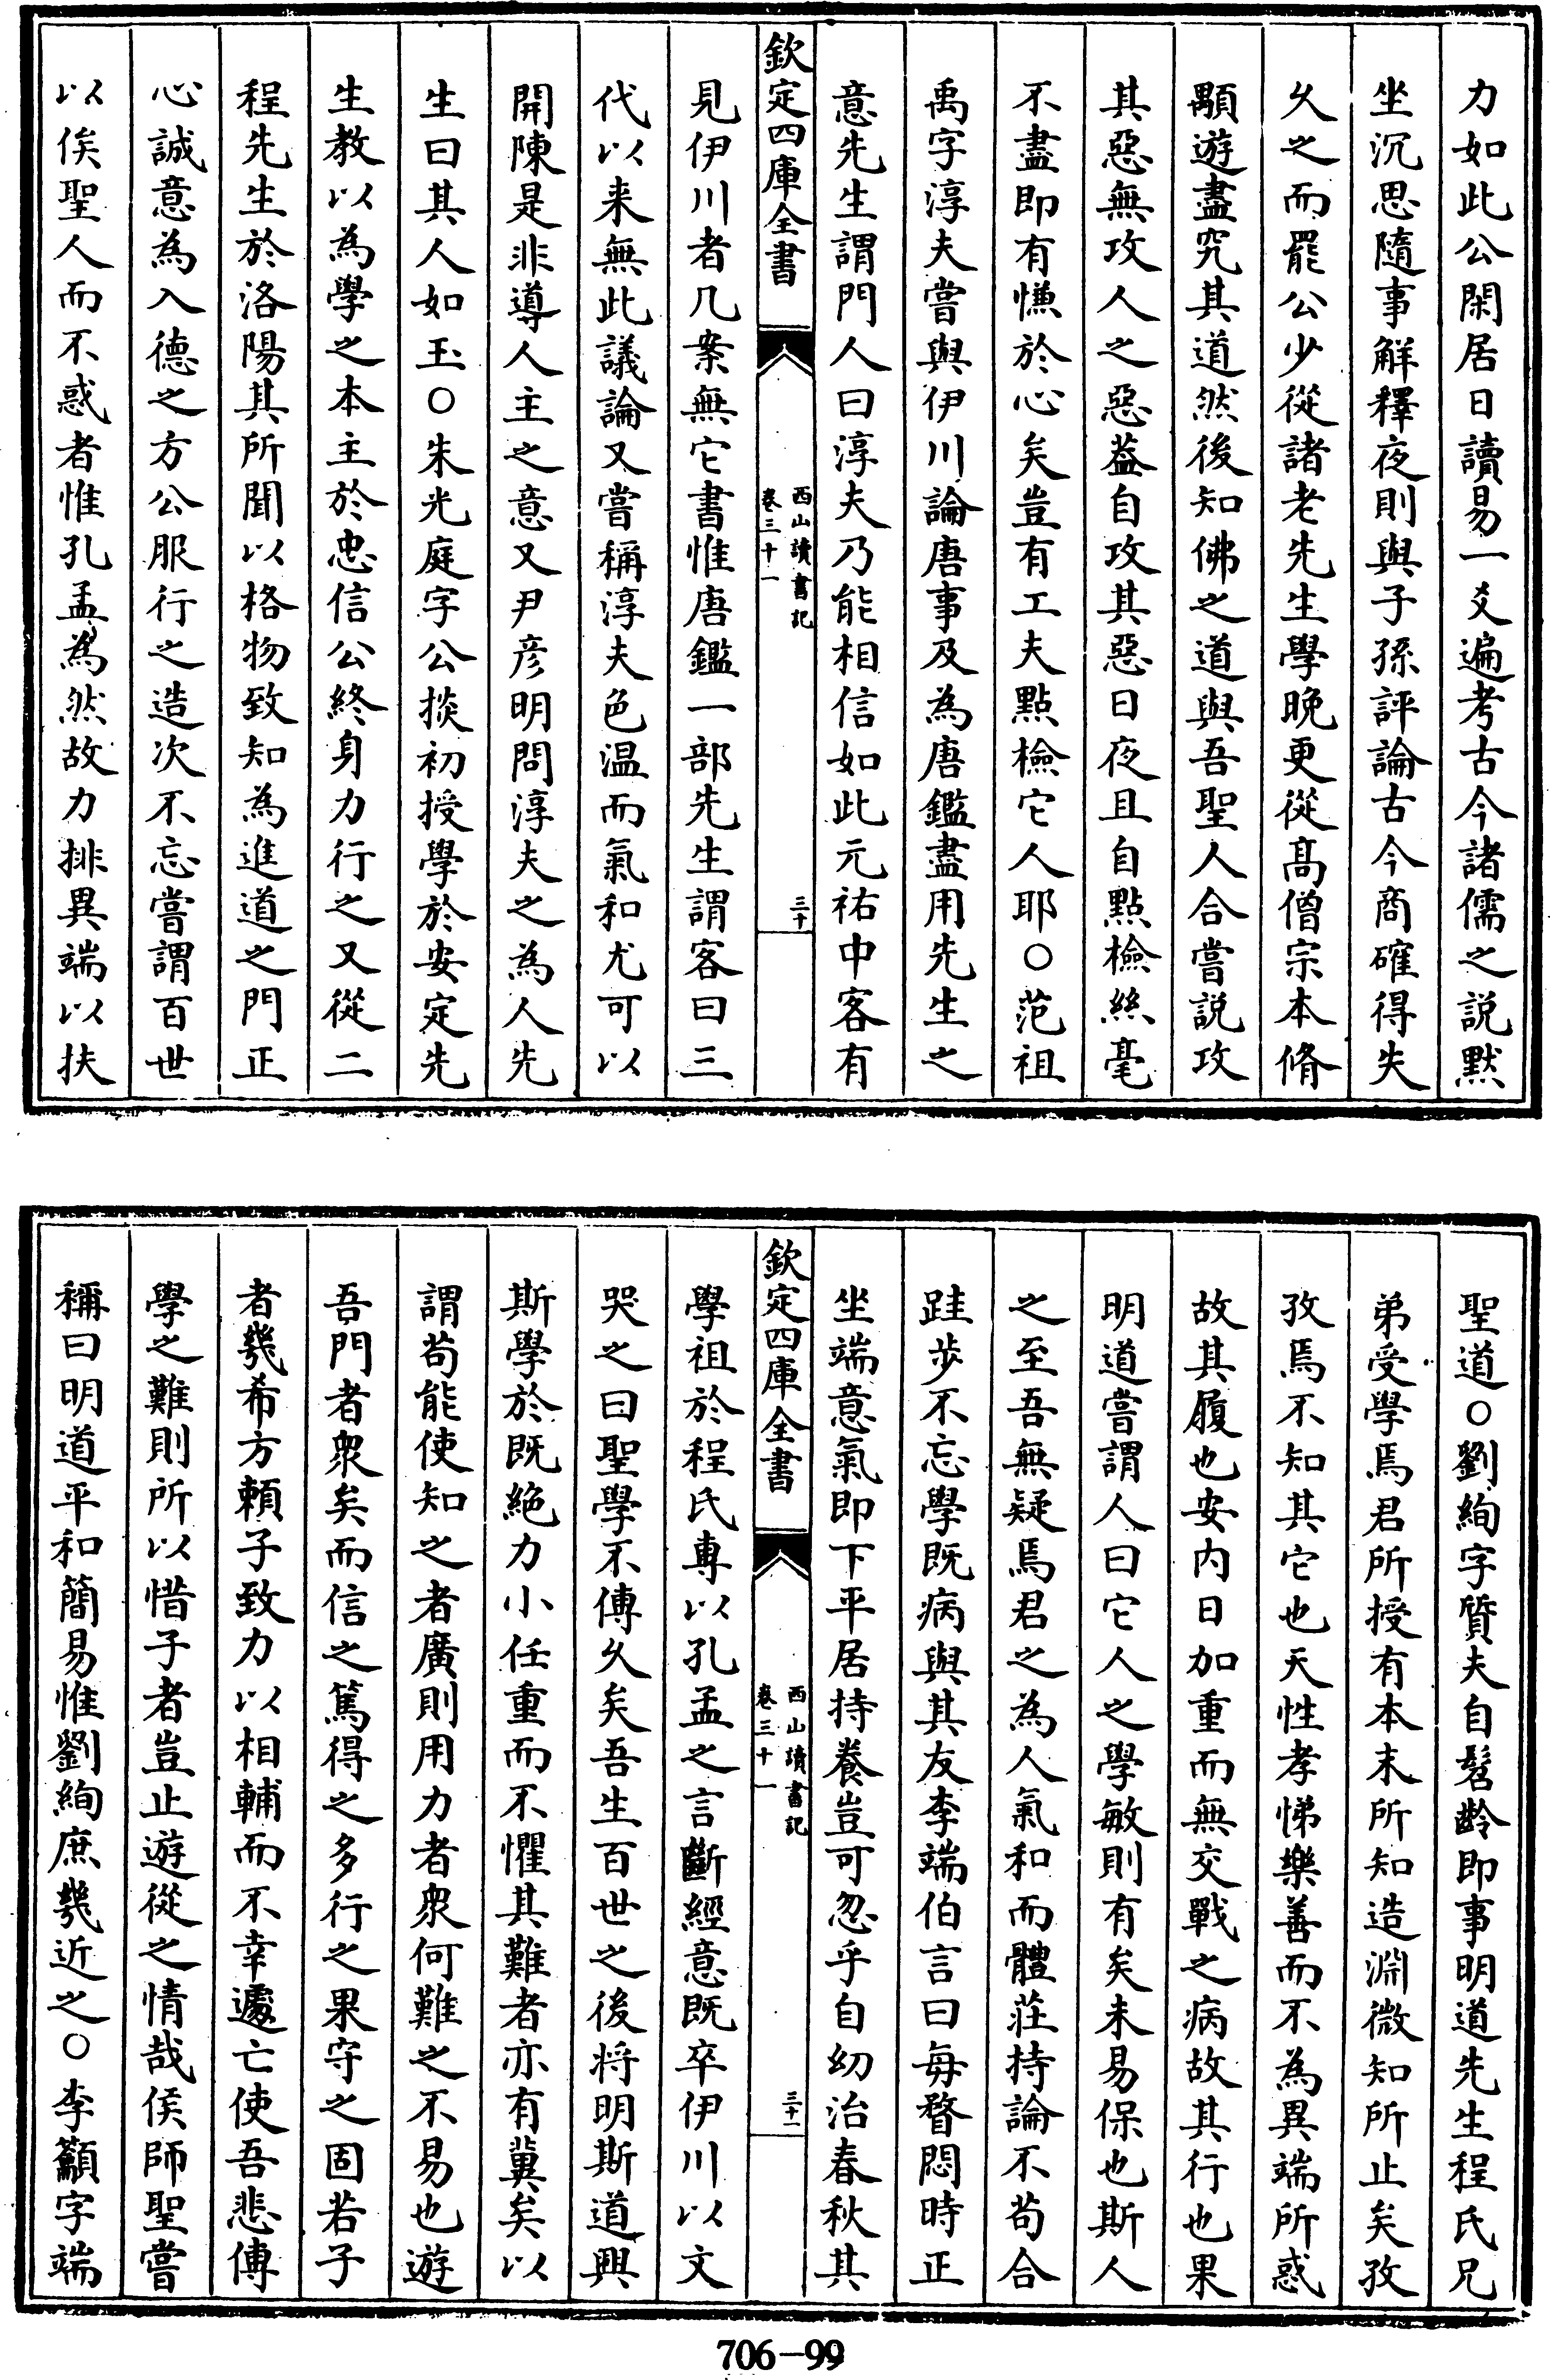 力如此公閑居日讀易一爻遍考古今諸儒之説默
坐沉思隨事解釋夜則與子孫評論古今商確得失
久之而罷公少從諸老先生學晚更從髙僧宗本脩
顒遊盡究其道然後知佛之道與吾聖人合嘗説攻
其惡無攻人之惡葢自攻其惡日夜且自點檢絲毫
不盡即有慊於心矣豈有工夫點檢它人耶○范祖
禹字淳夫嘗與伊川論唐事及為唐鑑盡用先生之
意先生謂門人曰淳夫乃能相信如此元祐中客有
欽定四庫全書
西山讀書記
卷三十一
三十
見伊川者几案無它書惟唐鑑一部先生謂客曰三
代以来無此議論又嘗稱淳夫色温而氣和尤可以
開陳是非導人主之意又尹彦明問淳夫之為人先
生曰其人如玉○朱光庭字公掞初授學於安定先
生教以為學之本主於忠信公終身力行之又從二
程先生於洛陽其所聞以格物致知為進道之門正
心誠意為入德之方公服行之造次不忘嘗謂百世
以俟聖人而不惑者惟孔孟為然故力排異端以扶
聖道○劉絢字質夫自髫齡即事明道先生程氏兄
弟受學焉君所授有本末所知造淵微知所止矣孜
孜焉不知其它也天性孝悌樂善而不為異端所惑
故其履也安内日加重而無交戰之病故其行也果
明道嘗謂人曰它人之學敏則有矣未易保也斯人
之至吾無疑焉君之為人氣和而體莊持論不苟合
跬步不忘學既病與其友李端伯言曰每瞀悶時正
坐端意氣即下平居持養豈可忽乎自幼治春秋其
欽定四庫全書
西山讀書記
卷三十一
三十一
學祖於程氏專以孔孟之言斷經意既卒伊川以文
哭之曰聖學不傳久矣吾生百世之後将明斯道興
斯學於既絶力小任重而不懼其難者亦有冀矣以
謂苟能使知之者廣則用力者衆何難之不易也遊
吾門者衆矣而信之篤得之多行之果守之固若子
者㡬希方頼子致力以相輔而不幸遽亡使吾悲傳
學之難則所以惜子者豈止遊從之情哉侯師聖嘗
稱曰明道平和簡易惟劉絢庶㡬近之○李籲字端
706-99